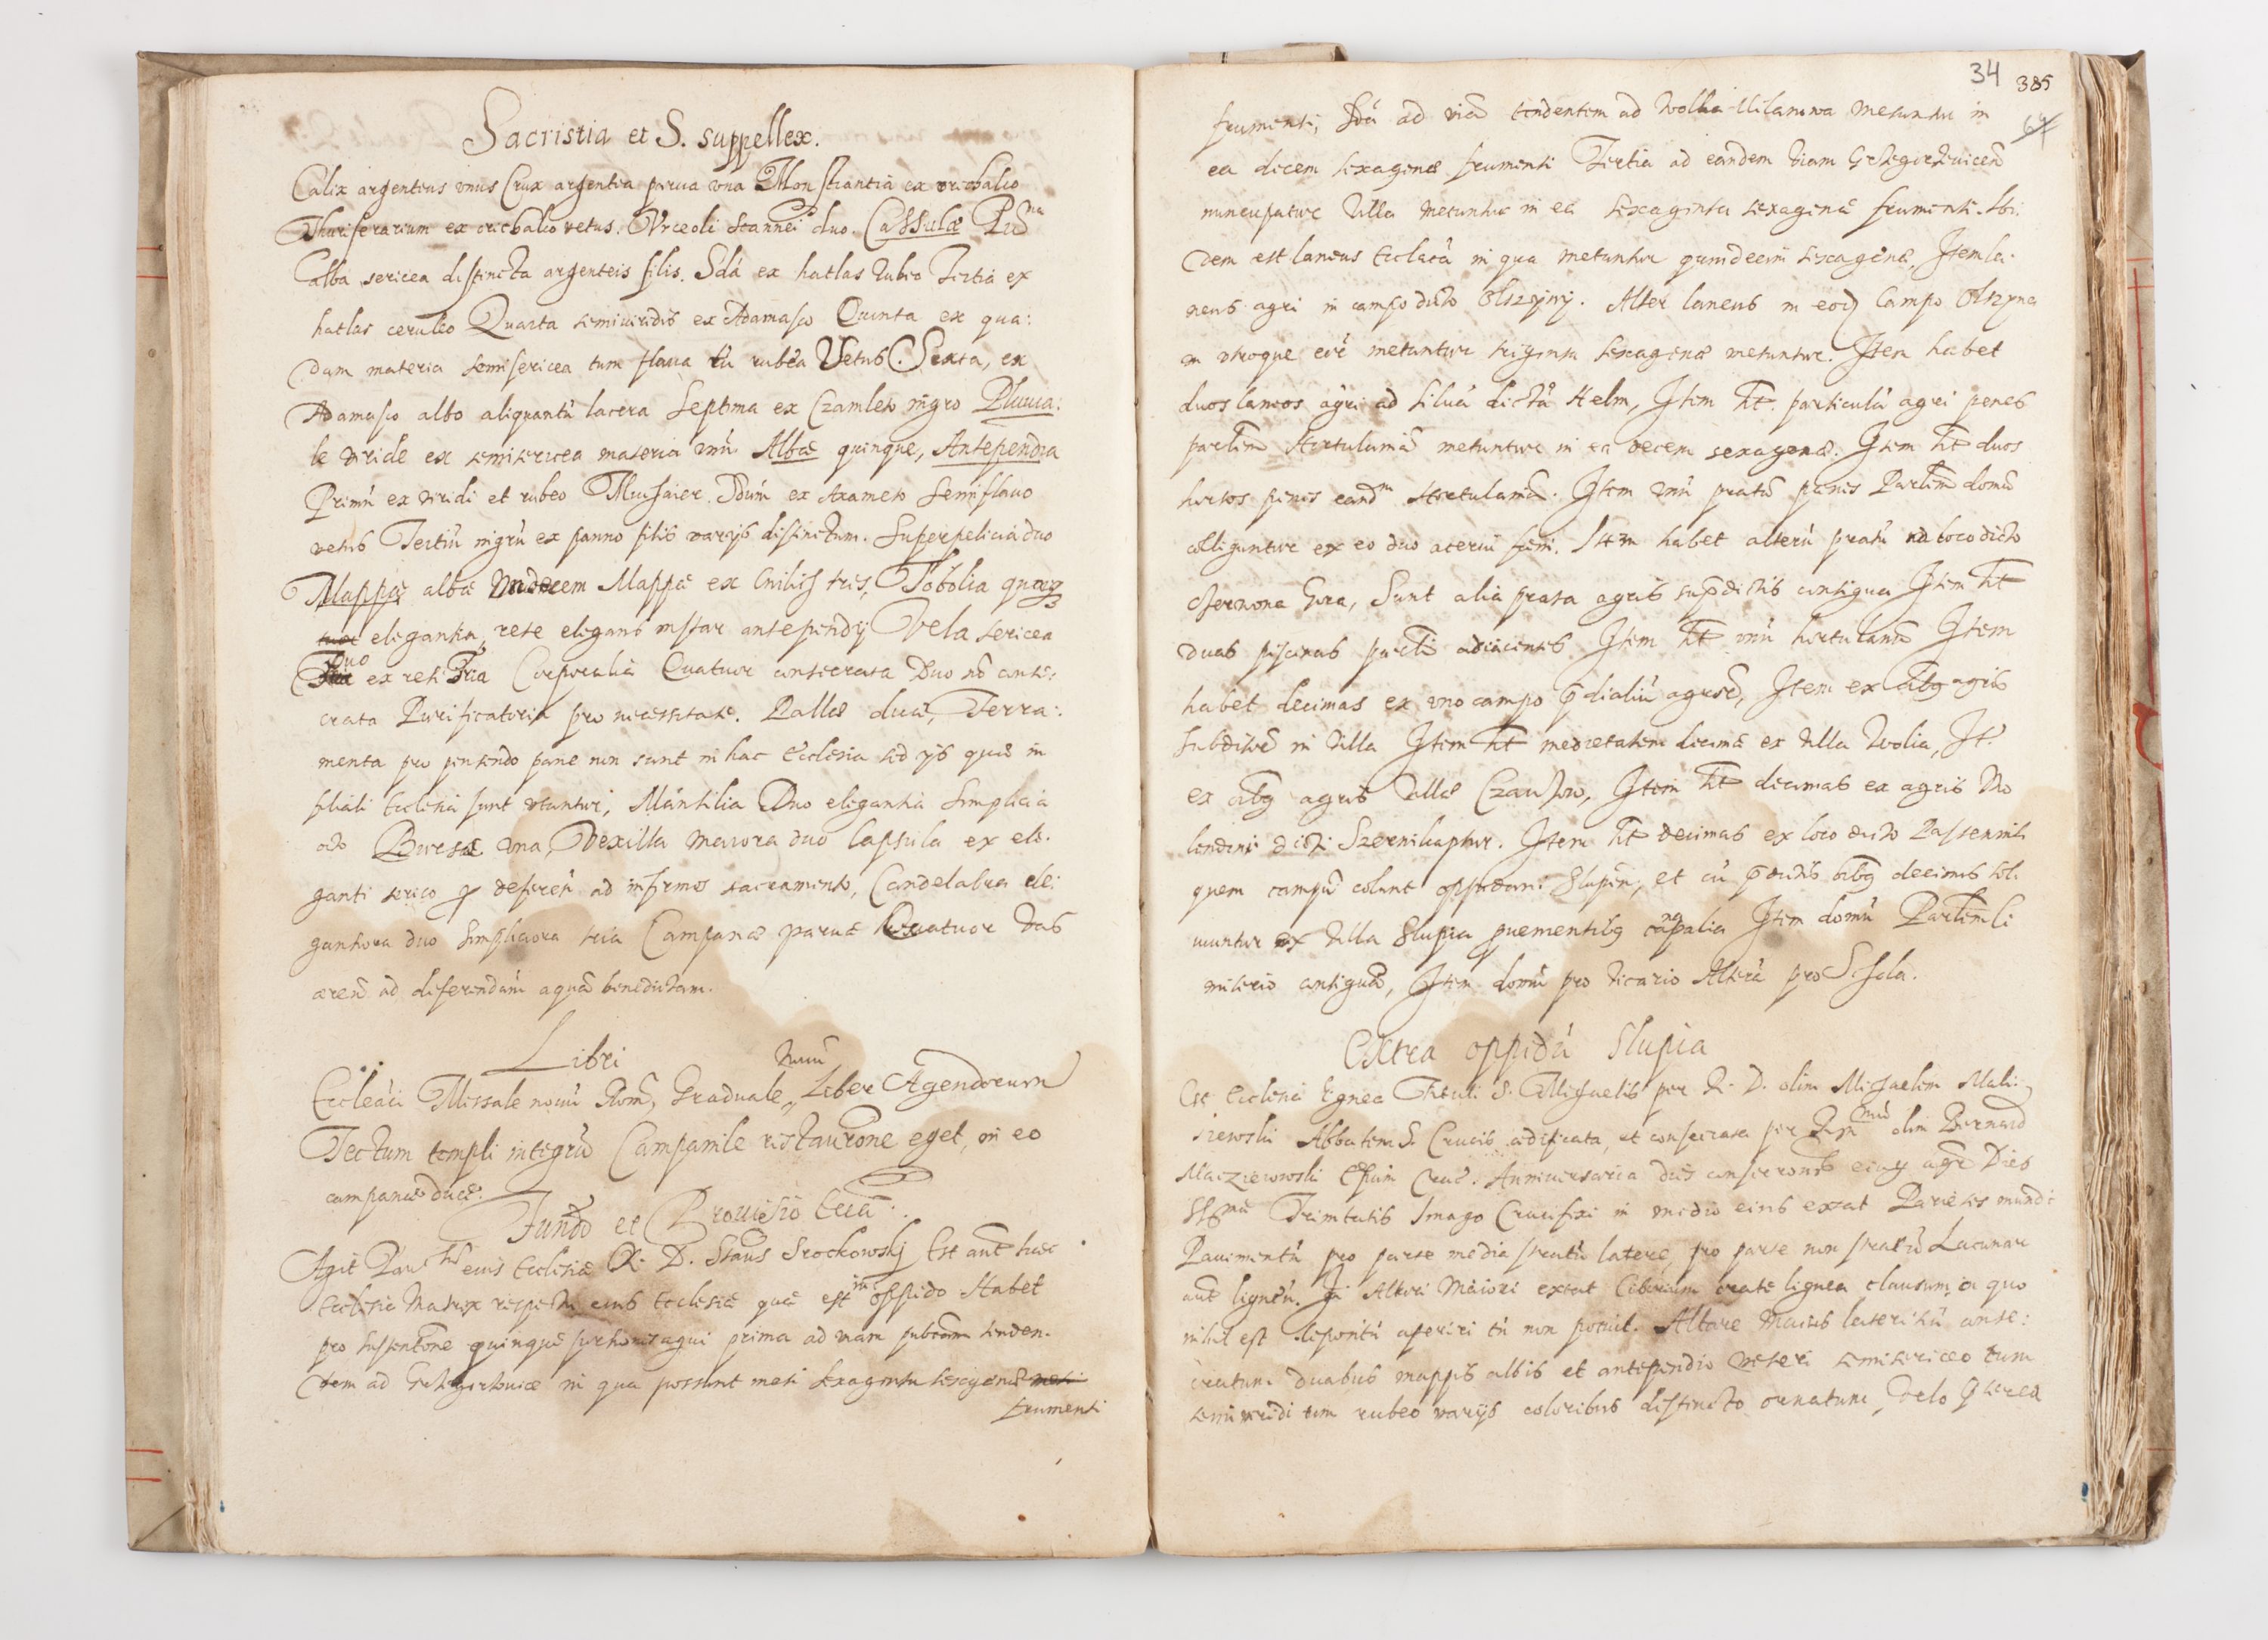 Sacristia et S. suppellex.
Calix argenteus unus Crux argentea parua vna Monstrantia ex orichalco
Thuriferarium ex orichalco vetus. Vrceoli stannei duo. Cassulæ Pri͞na
alba sericea distincta argenteis filis. Sda ex hatlas rubro Tertia ex
hatlas ceruleo Quarta semiuiridis ex Adamasco Quinta ex qua:
dam materia semisericea tum flaua tu rubea Vetus. Sexta, ex
Adamasco albo aliquantu lacera Septima ex Czamleto nigro Pluuia:
le viride ex semisericea materia unu Albæ quinque, Antependia
Primu ex viridi et rubeo Muchaier. Sdum ex Axameto semiflauo
vetus Tertiu nigru ex panno filis varijs distinctum. Superpelicia duo
Mappæ albæ undecem Mappæ ex tres, Tobolia
elegantia, rete elegans instar antependij Vela sericea
duo ex reti Tria Corporalia Quatuor consecrata Duo no conse:
crata Purificatoria pro necessitate. Pallæ duæ, Ferra:
menta pro pinsendo pane non sunt in hac Ecclesia sed ijs quæ in
filiali Ecclesia sunt vtuntur, Mantilia Duo elegantia Simplicia
octo Bursæ una, Vexilla maiora duo Capsula ex ele:
ganti serico p deferen ad infirmos sacramento, Candelabra ele:
gantiora duo Simpliciora tria Campanæ paruæ Quatuor Vas
æreu ad deferendam aquam benedictam.
Libri
Eccleaci Missale nouu Rom, Graduale unu Liber Agendorum
Tectum templi integru Campanile restaurone eget, in eo
campanæ duæ.
Fundo et Prouisio Eccæ.
Agit Par eius Ecclesiæ R. D. Staus Srockowskj Est aut hæc
Ecclesia Matrix respectu eius Ecclesiæ quæ est in oppido Habet
pro sustentone quinque agri prima ad viam tenden:
tem ad Grzegorzouice in qua possunt meti sexaginta sexagenæ
frumenti
34 385
64
frumenti, Sda ad via tendentem ad Wolka Milanowa metuntur in
ea decem sexagenæ frumenti Tertia ad eandem viam
nuncupatur Villa metuntur in ea sexaginta sexagenæ frumenti. Ibi
dem est laneus in qua metuntur quindecim sexagenæ, Item la:
neus agri in campo dicto Olszyny. Alter laneus in eod Campo Olszyna
in vtroque eoru metuntur triginta sexagenæ metuntur. Item habet
duos laneos agri ad silua dicta Helm, Item ht. particula agri penes
metuntur in ea decem sexagenæ. Item ht duos
hortos penes eandm Hortulania. Item unu pratu penes domu
colliguntur ex eo duo acerui feni. Item habet alteru pratu in loco dicto
Czernona Gura, Sunt alia prata agris supdictis contigua Item ht
duas piscinas adiacentes Item ht unu hortulanu Item
habet decimas ex vno campo prædialiu agroru, Item ex oibus agris
subditoru in Villa Item ht medietatem decimæ ex Villa Wolia, It.
ex oibus agris Villæ Item ht decimas ex agris Mo
lendini dicti Item ht decimas ex loco dicto
quem campu colunt oppidani Slupien, et cu pdictis oibus decimis sol:
uuntur ex Villa Slupia Item domu
miterio contigua, Item domu pro vicario Altera pro Schola.
Extra oppidu Slupia
Est Ecclesia lignea Tituli S. Michaelis per R. D. olim Michaelem Mali:
szewski Abbatem S. Crucis ædificata, et consecrata per olim Bernard
Macziewowski Epum Crac. Anniuersaria dies consecronis eius agr Dies
SSmæ Trinitatis Imago Crucifixi in medio eius extat Parietes mundi
Pauimentu pro parte media stratu latere, pro parte non stratu Lacunar
aut ligneu. In Altari Maiori extat Ciborium crate lignea clausum in quo
nihil est repositu aperiri tu non potuit. Altare Maius lateritiu conse:
cratum duabus mappis albis et antependio veteri semisericeo tum
semiuiridi tum rubeo varijs coloribus distincto ornatum, Velo